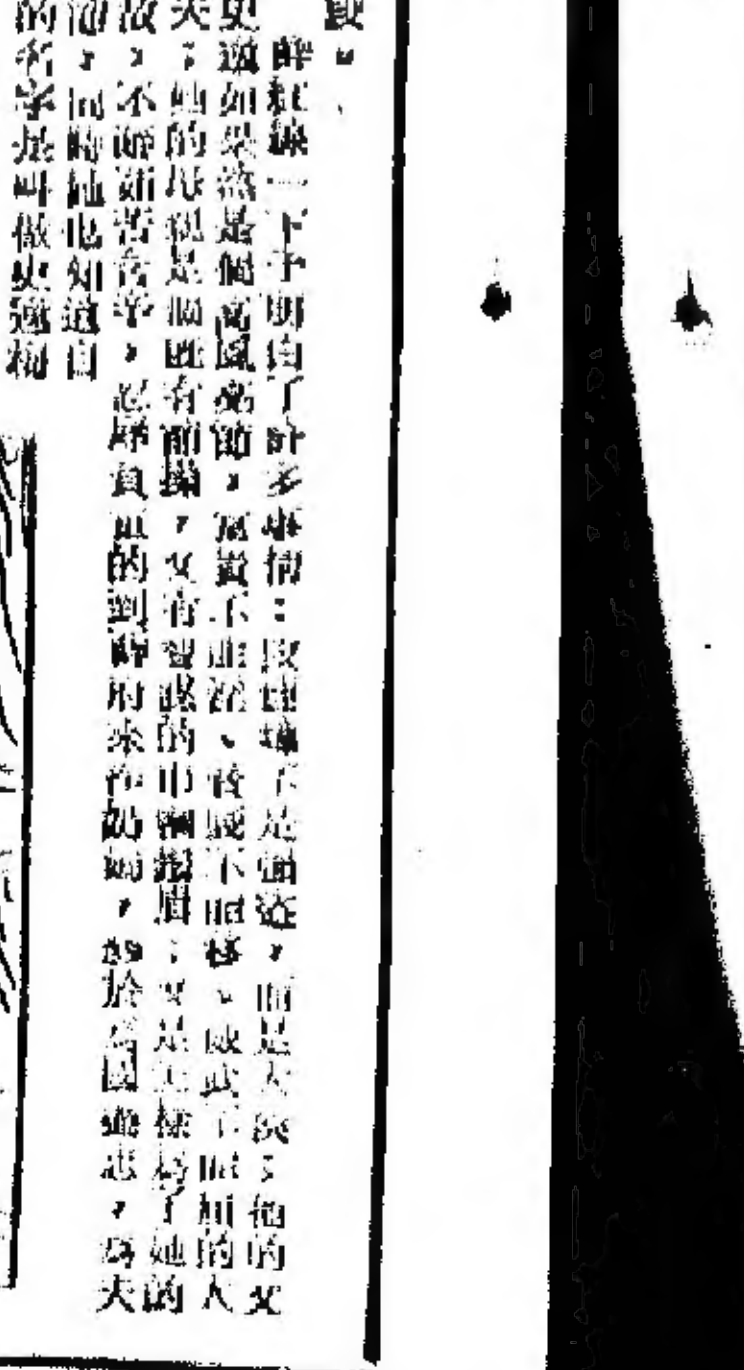 薛紅線一下子明白了許多事情:段連璋不是強盜,而是大俠;他的父
更邈如果然是個高風亮節,富貴不能淫、貧賤不能移、威武不能屈的大
夫;她的母親是個既有節操,又有智謀的巾幗鬚眉;又是怎樣為了她的
故,不辭茹苦含辛,忍辱負重的到薛府來作奶媽,終於為國盡忠,為夫
節,同時她也知道自
的名字是叫做史逸梅